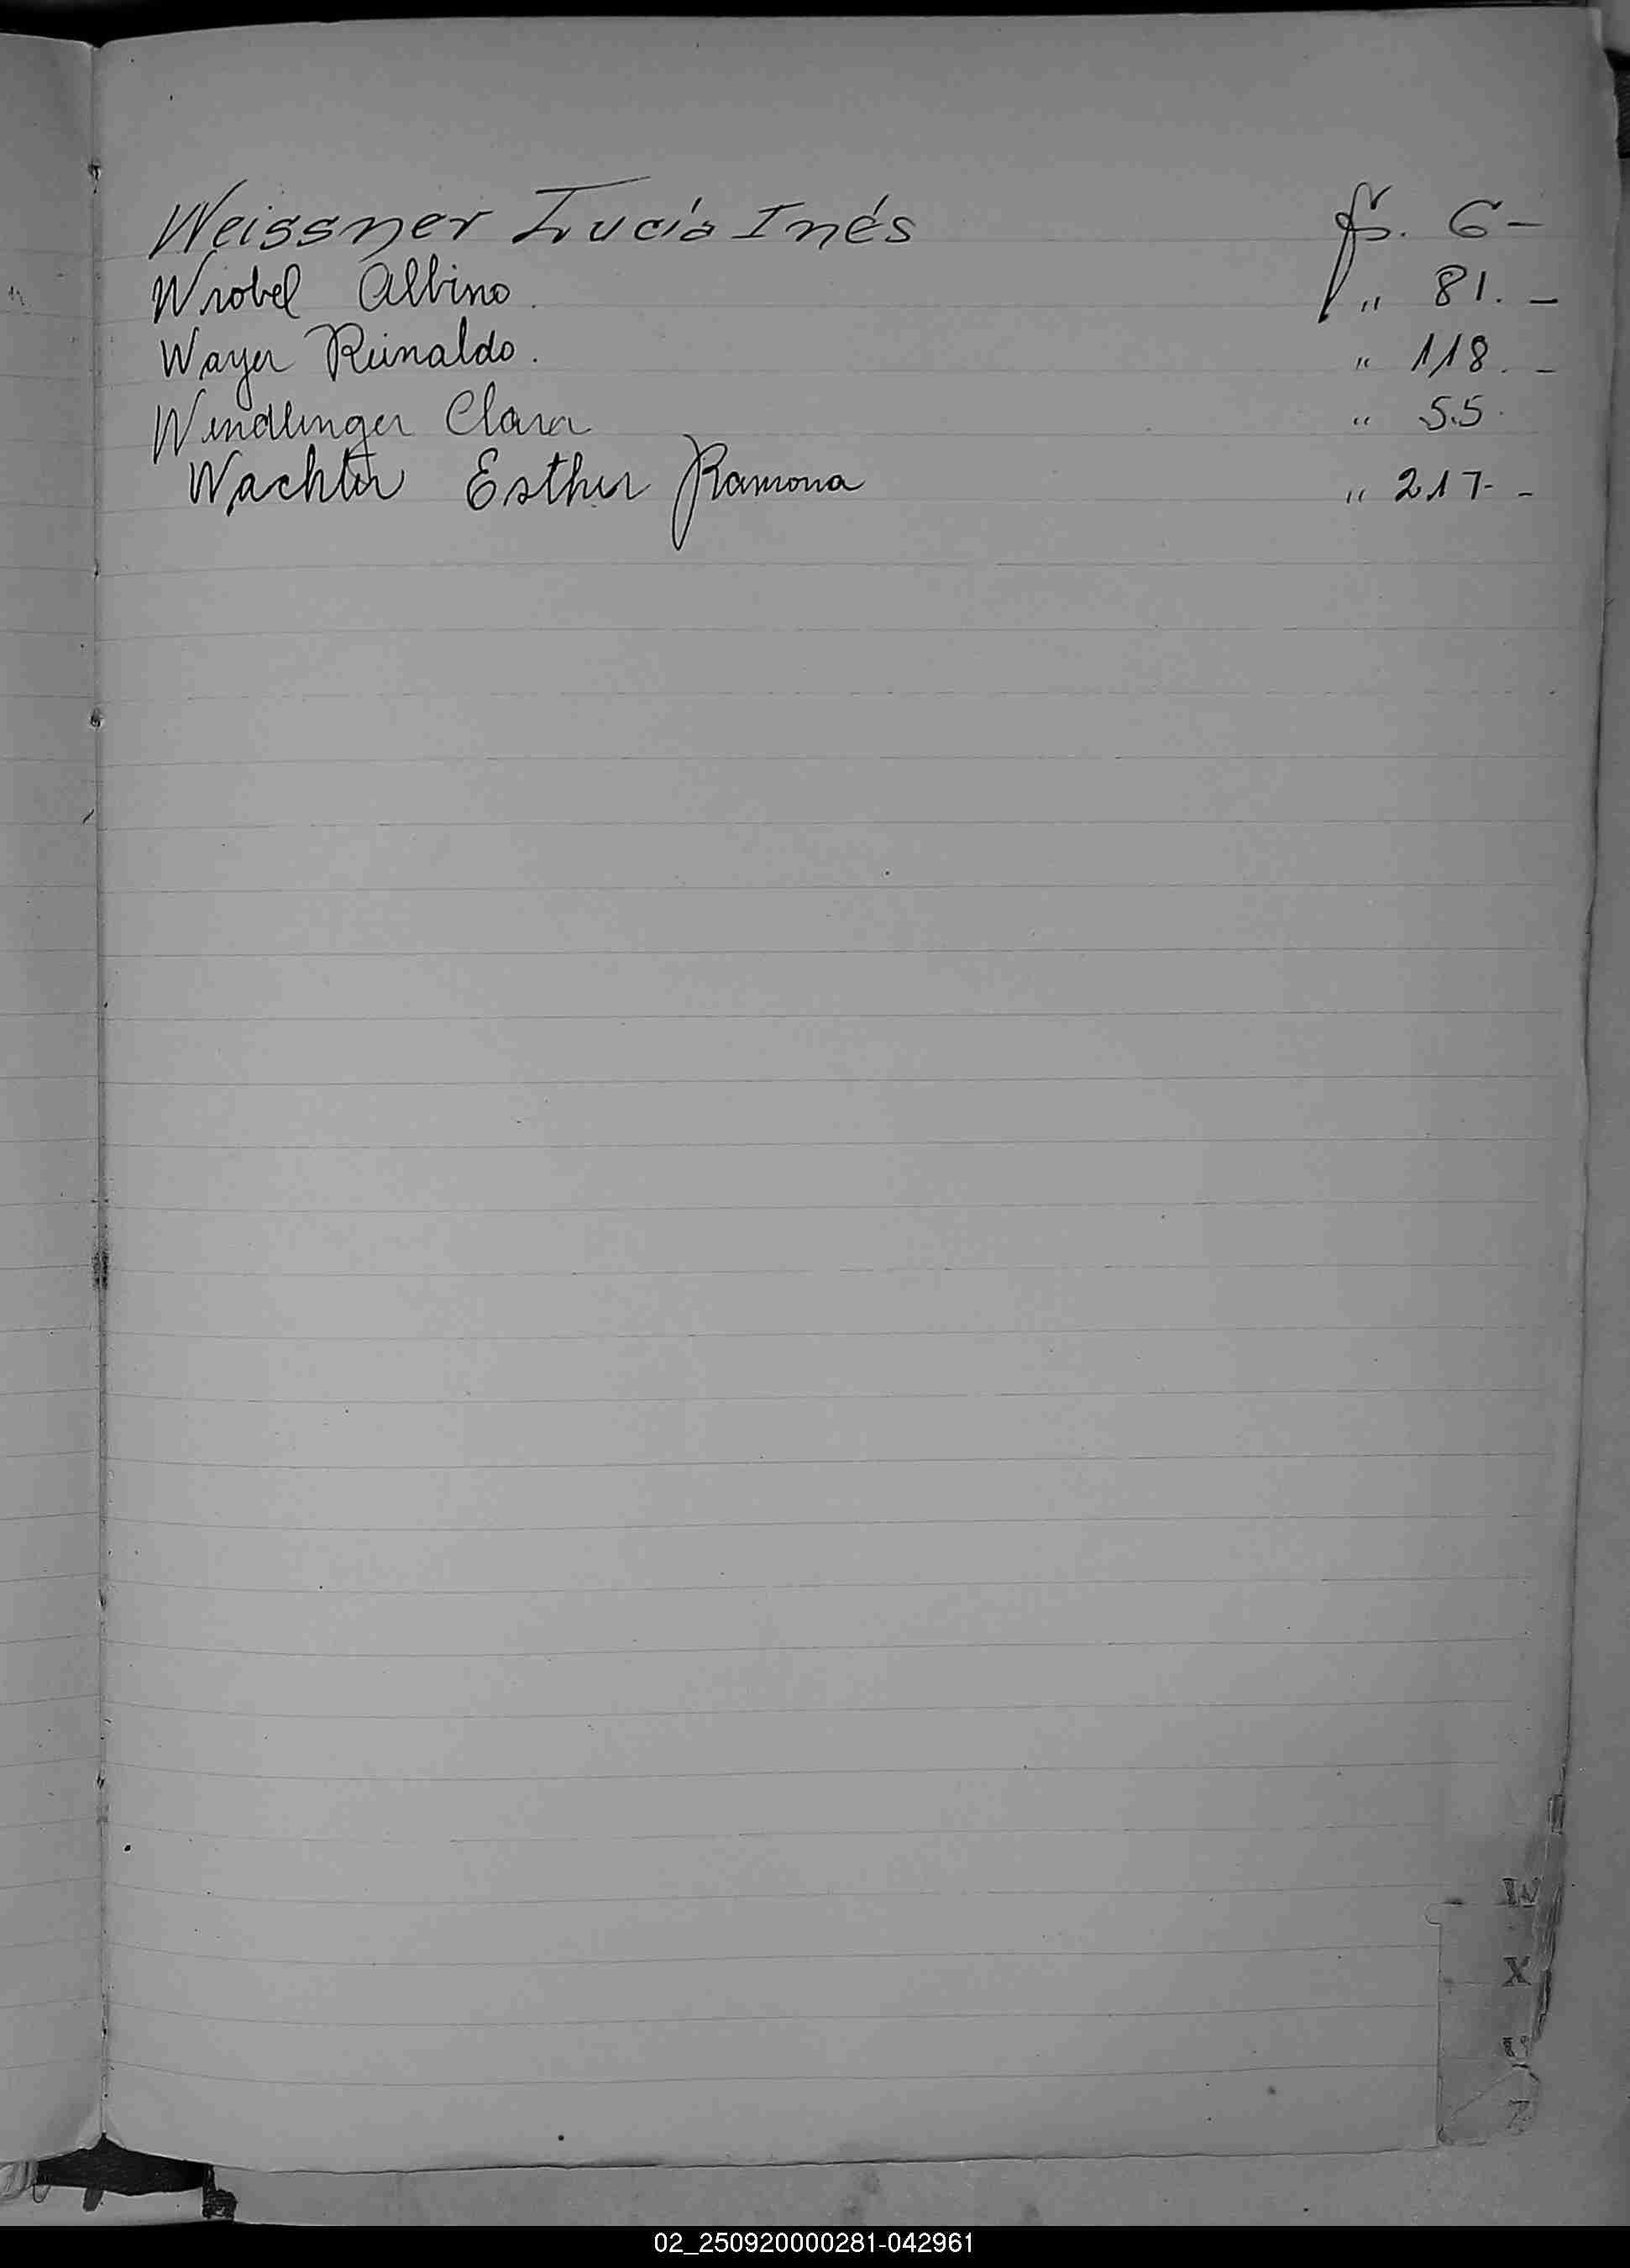 Weissner Lucía Inés fs. 6 -
Wrobel Albino. " 81. -
Wayer Reinaldo. " 118. -
Wendlinger Clara " 55.
Wachter Esther Ramona " 217- -
W
X
Z
02_250920000281-042961